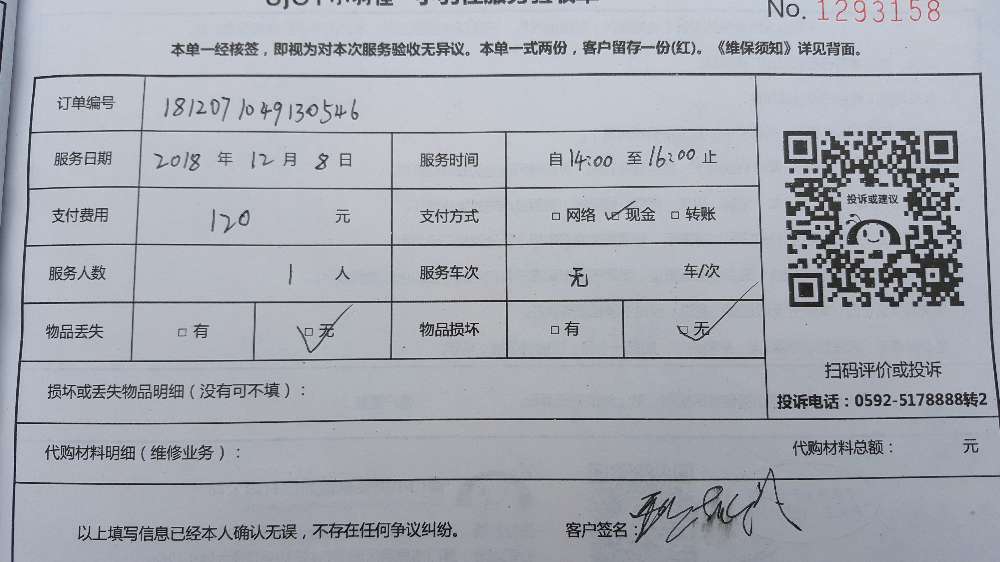 No. 1293158
本单一经核签，即视为对本次服务验收无异议。本单一式两份，客户留存一份(红)。《维保须知》详见背面。
订单编号 181207104913054 6
服务日期 2018 年 12 月 8 日 服务时间 自 14:00 至 16:00 止
投诉或建议
支付费用 120 元 支付方式 □ 网络 ☑ 现金 □ 转账
服务人数 1 人 服务车次 无 车/次
物品丢失 □ 有 ☑ 无 物品损坏 □ 有 ☑ 无
扫码评价或投诉
投诉电话：0592-5178888转2
损坏或丢失物品明细（没有可不填）：
代购材料明细（维修业务）： 代购材料总额： 元
以上填写信息已经本人确认无误，不存在任何争议纠纷。 客户签名：